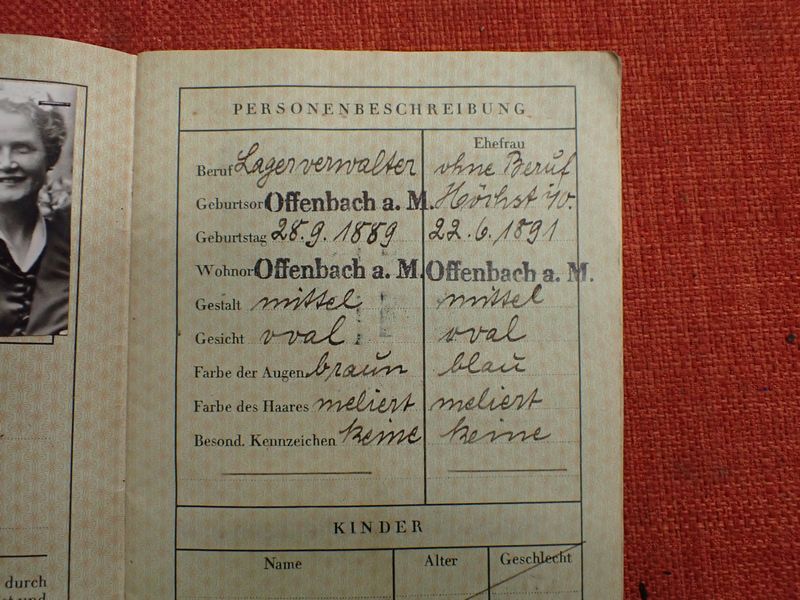 PERSONENBESCHREIBUNG
Ehefrau
Beruf Lagerverwalter ohne Beruf
Geburtsor Offenbach a. M. Höchst i/O.
Geburtstag 28.9.1889 22.6.1891
Wohnor Offenbach a. M. Offenbach a. M.
Gestalt mittel mittel
Gesicht oval oval
Farbe der Augen braun blau
Farbe des Haares meliert meliert
Besond. Kennzeichen keine keine
KINDER
Name Alter Geschlecht
durch
und